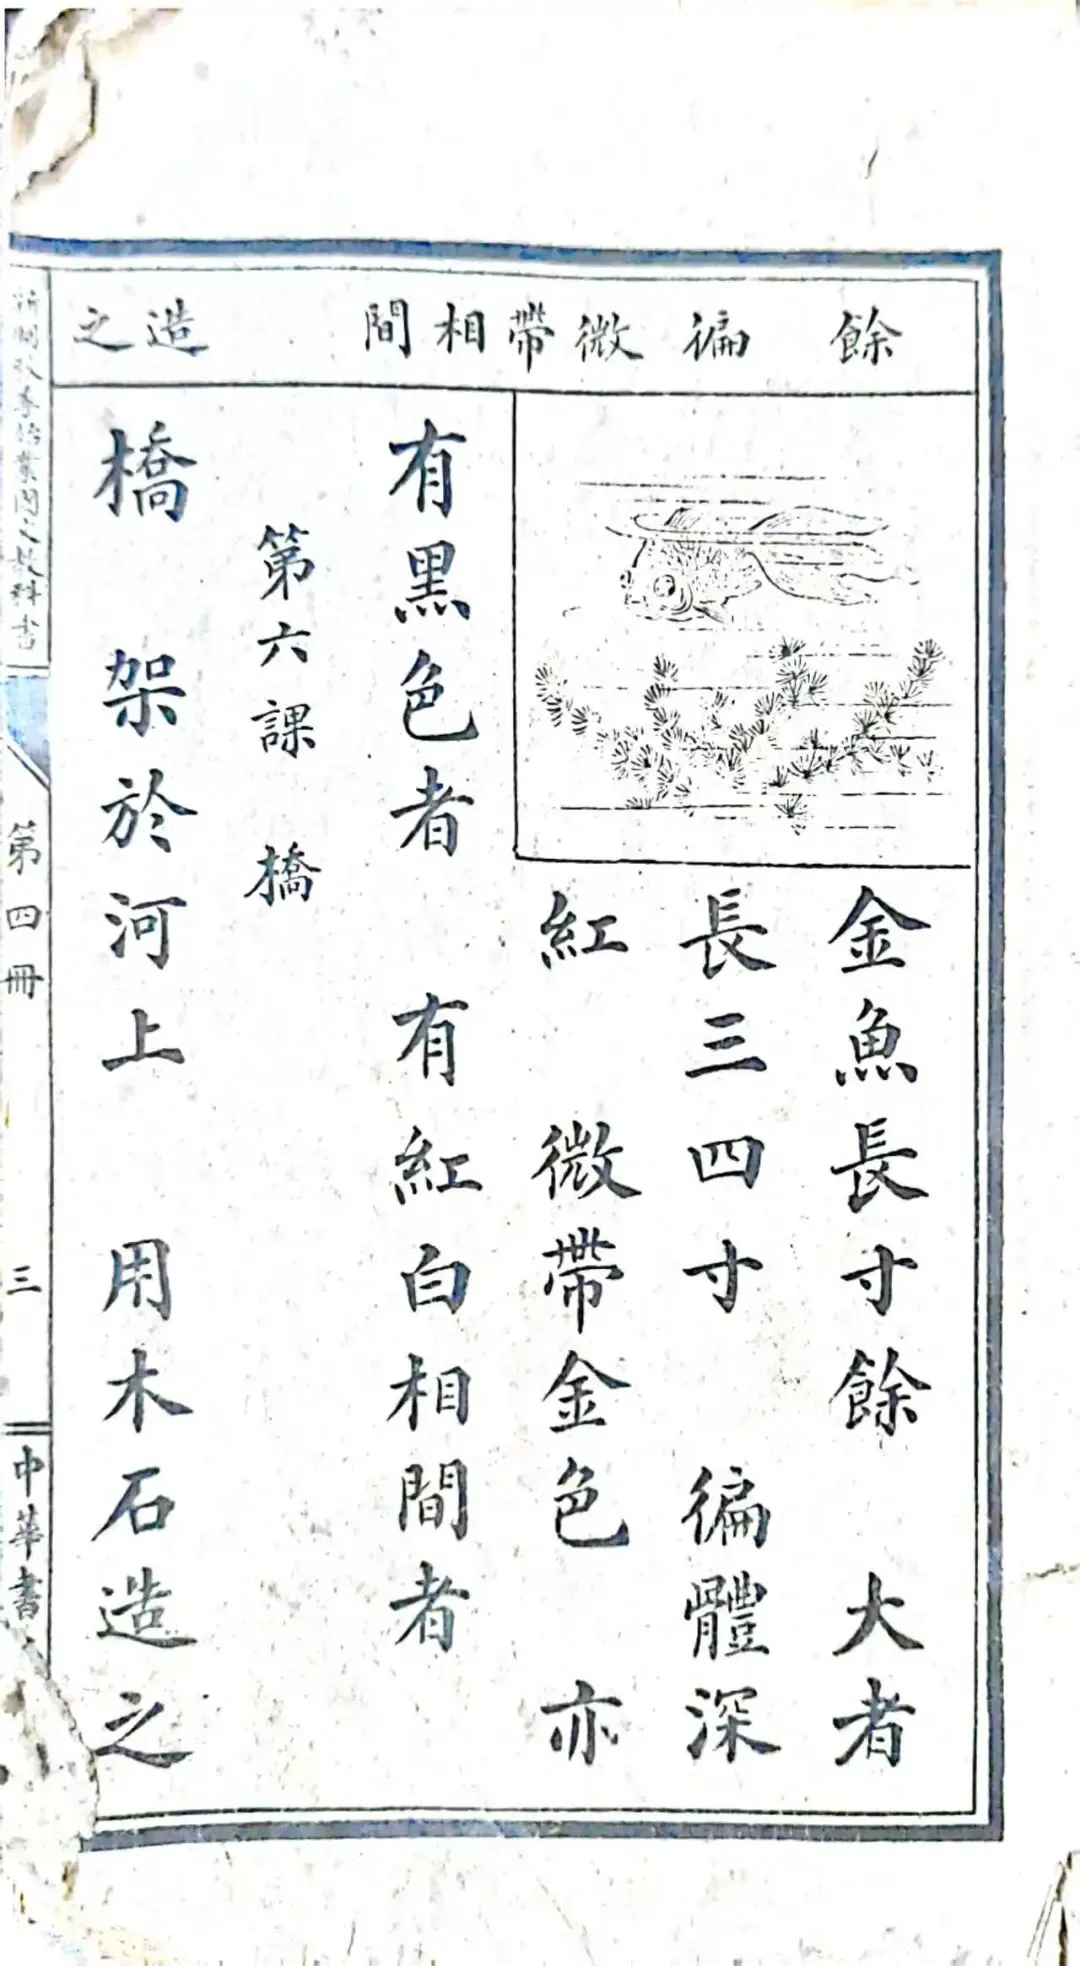 餘
徧
微帶相間
造之
金魚長寸餘 大者
長三四寸 徧體深
紅 微帶金色 亦
有黑色者 有紅白相間者
第六課 橋
橋 架於河上 用木石造之
國文教科書
第四冊
三
中華書